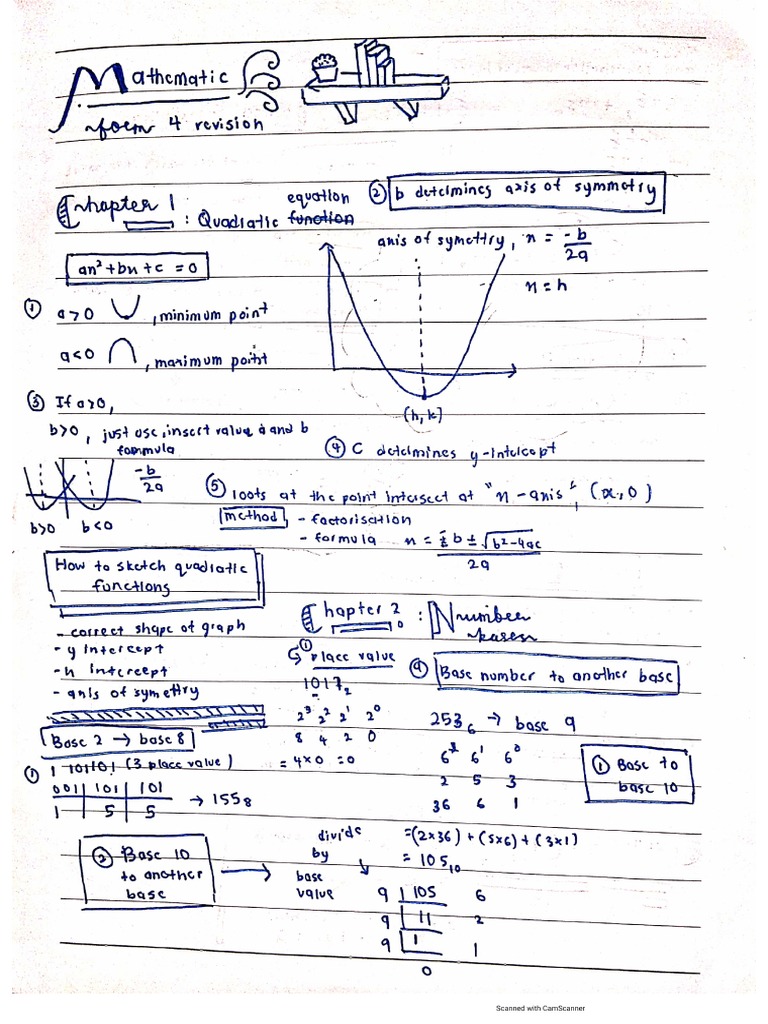 Mathematic
form 4 revision
Chapter 1 : Quadratic function equation
ax²+bx+c = 0
① a>0 , minimum point
a<0 , maximum point
② b determines axis of symmetry
axis of symettry, x = -b/2a
x = h
(h, k)
③ If a>0,
b>0 , just use, insert value a and b
formula
-b/2a
b>0 b<0
④ C determines y-intercept
⑤ roots at the point intersect at "x-axis", (x,0)
method - factorisation
- formula x = ± b ± √b²-4ac / 2a
How to sketch quadratic
functions
- correct shape of graph
- y intercept
- x intercept
- axis of symettry
Chapter 2 : Number
Bases
① place value
101?₂
2³ 2² 2¹ 2⁰
8 4 2 0
= 4×0 = 0
Base 2 → base 8
① 1 101101 (3 place value)
001 | 101 | 101
1 | 5 | 5 → 155₈
④ Base number to another base
253₆ → base 9
6² 6¹ 6⁰
2 5 3
36 6 1
① Base to
base 10
= (2×36) + (5×6) + (3×1)
= 105₁₀
② Base 10
to another
base
divide
by
base
value
9 | 105 6
9 | 11 2
9 | 1 1
0
Scanned with CamScanner